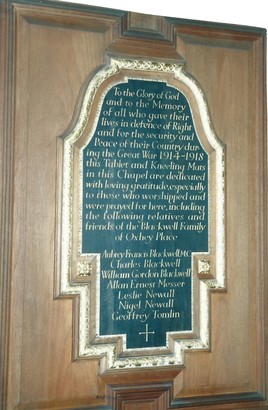 To the Glory of God
and to the Memory
of all who gave their
lives in defence of Right
and for the security and
Peace of their Country dur-
ing the Great War 1914-1918
this Tablet and Kneeling Mats
in this Chapel are dedicated
with loving gratitude, especially
to those who worshipped and
were prayed for here, including
the following relatives and
friends of the Blackwell Family
of Oxhey Place
Aubrey Francis Blackwell, M.C.
Charles Blackwell
William Gordon Blackwell
Allan Ernest Messer
Leslie Newall
Nigel Newall
Geoffrey Tomlin